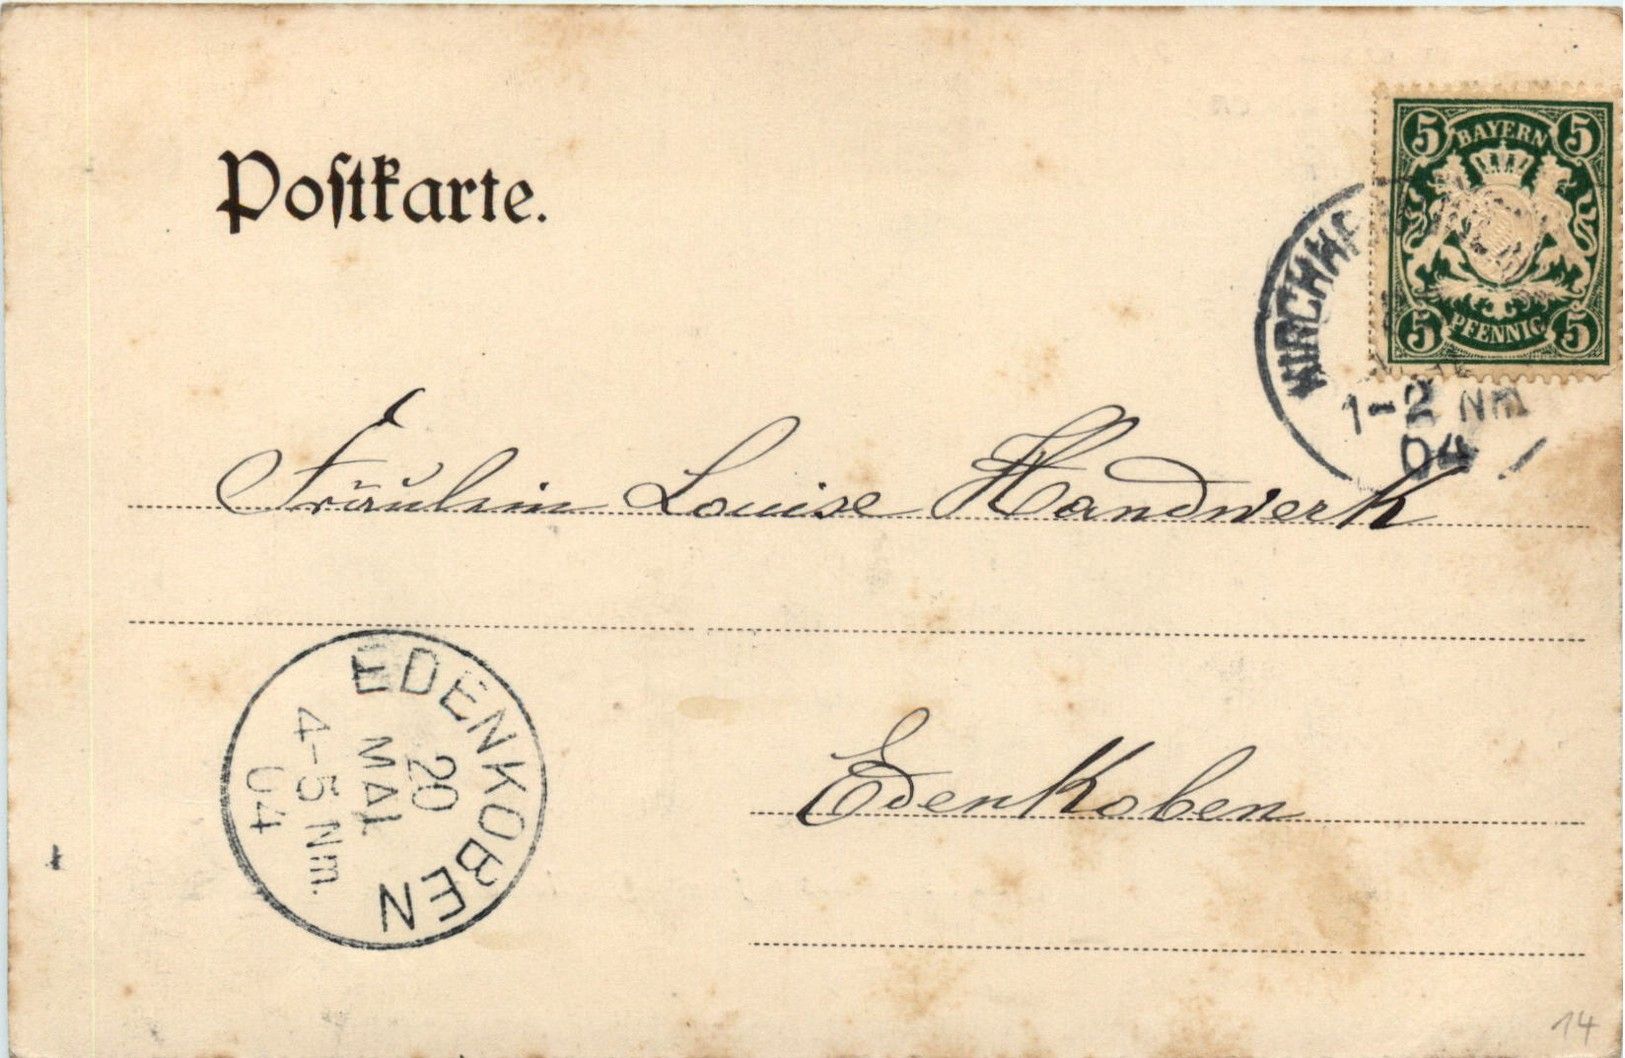 Postkarte.
5 BAYERN 5
5 PFENNIG 5
1-2 Nm
04
Fräulein Louise Handwerk
EDENKOBEN
20
MAI
4-5 Nm.
04
Edenkoben
14